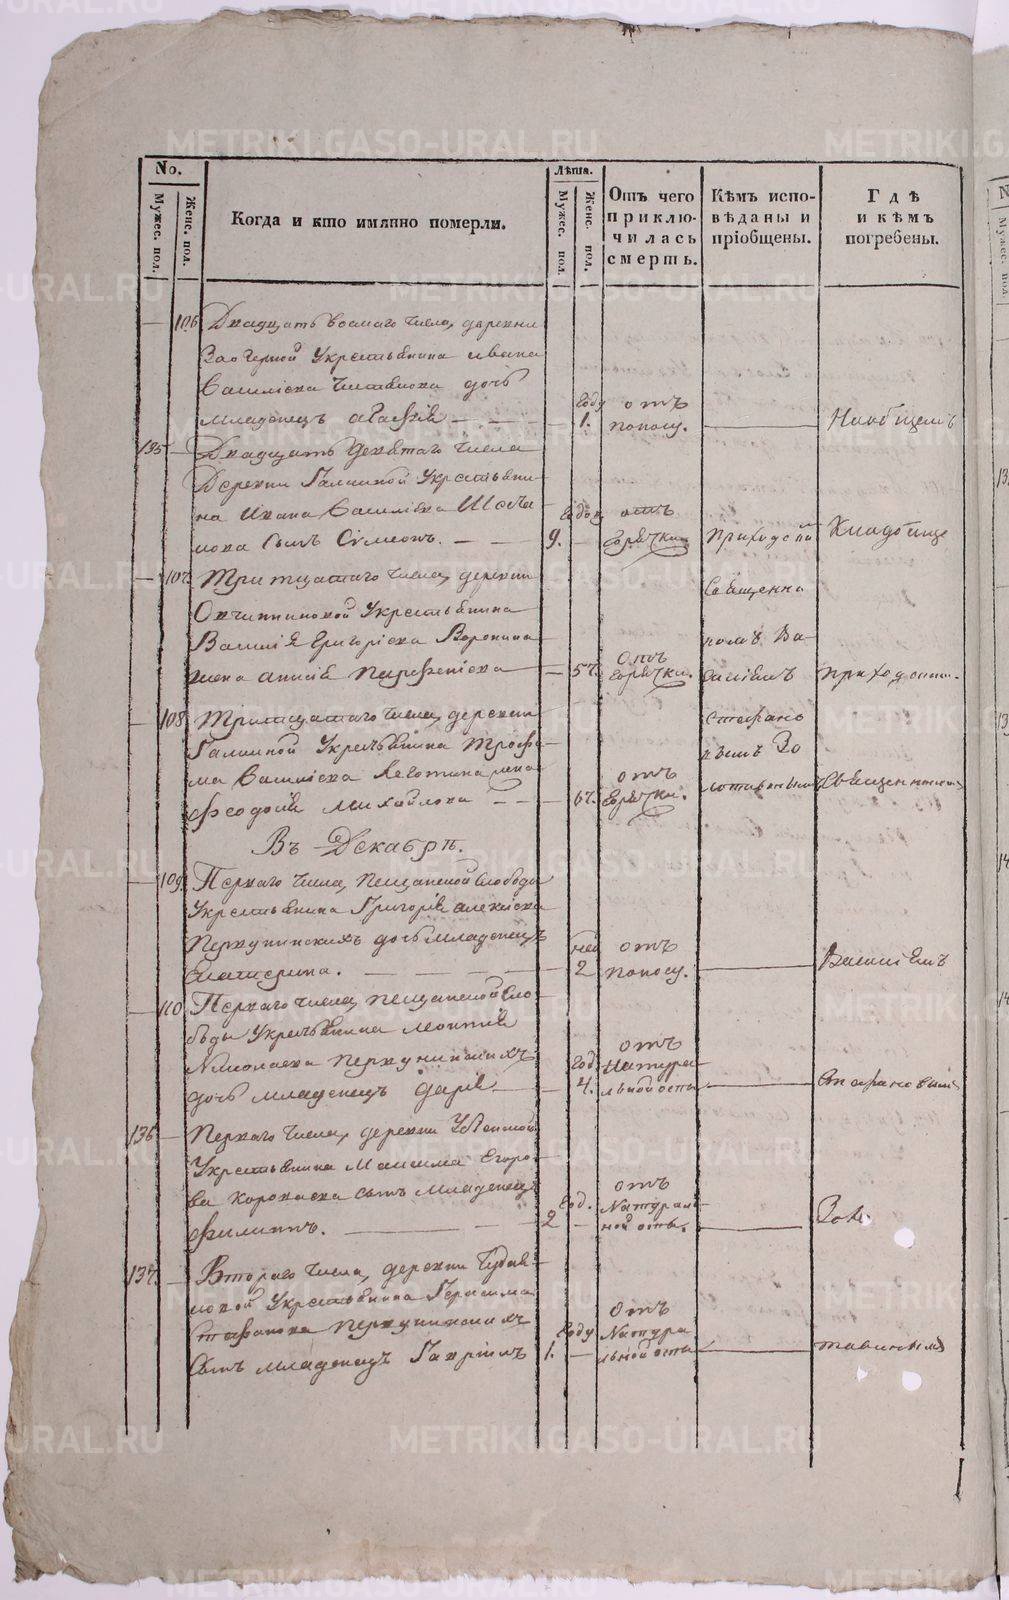 No.
Мужес. пол.
Женс. пол.
Когда и кто имянно померли.
Лѣта.
Мужес. пол.
Женс. пол.
Отъ чего приклю-
чилась
смерть.
Кѣмъ испо-
вѣданы и
пріобщены.
Гдѣ
и кѣмъ
погребены.
106 Двадцать восмаго числа, деревни
Заозерной Укрестьянина Ивана
дочь
младенецъ Году 1. отъ поносу.
На общемъ
135 Двадцать девятаго числа
Деревни Галкиной Укрестьяни-
на Ивана Василіева
сынъ Сѵмеонъ. Годовъ 9. отъ Горячки. Приходской Кладбище
107 Тритцатаго числа, деревни
Овчинниковой Укрестьянина
Василія Григоріева Воронина
жена 57. отъ Горячки.
Священно
Ва-
силіемъ
приходскимъ
108 Тритцатаго числа, деревни
Галкиной Укрестьянина Трофи-
ма Василіева жена
Феодосія Михайлова 67. отъ Горячки.
Стефано
вымъ Зо
лотавинымъ
Священникомъ
Въ Декабрѣ.
109 Перваго числа, Песчанской слободы
Укрестьянина Григорія Алексіева
Первушинскихъ дочь младенецъ
Екатерина. нед 2 отъ поносу.
Василіемъ
110 Перваго числа, Песчанской сло-
боды Укрестьянина
Николаева Первушинскихъ
дочь младенецъ Дарія Год 4. отъ Натура-
льной оспы
Стефановымъ
136 Перваго числа, деревни
Укрестьянина Максима Егоро-
ва сынъ младенецъ
Филиппъ. Год. 2 отъ Натураль-
ной оспы.
Золо
137. Втораго числа, деревни
Укрестьянина Герасима
Стефанова Первушинскихъ
сынъ младенецъ Гавріилъ Году 1. отъ Натура
льной оспы
тавинымъ